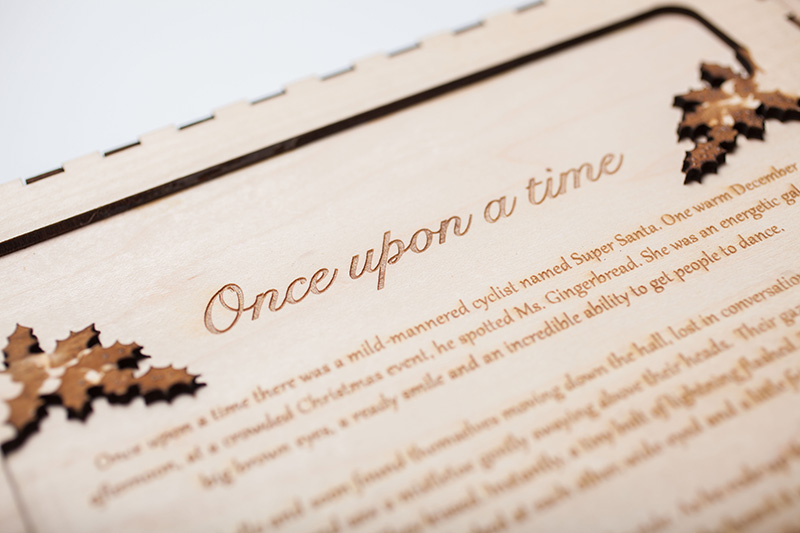 Once upon a time
Once upon a time there was a mild-mannered cyclist named Super Santa. One warm December
afternoon, at a crowded Christmas event, he spotted Ms. Gingerbread. She was an energetic gal
big brown eyes, a ready smile and an incredible ability to get people to dance.
and soon found themselves moving down the hall, lost in conversation
saw a mistletoe gently swaying above their heads. Their gaz
kissed. Instantly, a tiny bolt of lightning flashed
at each other wide eyed and a little